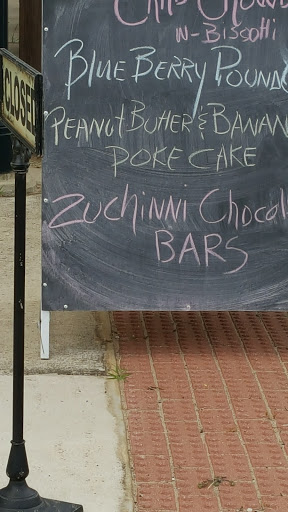 W-BISCOTTI
BLUE BERRY POUND
PEANUT BUTTER & BANAN
POKE CAKE
ZUCHINNI CHOCOL
BARS
CLOSED